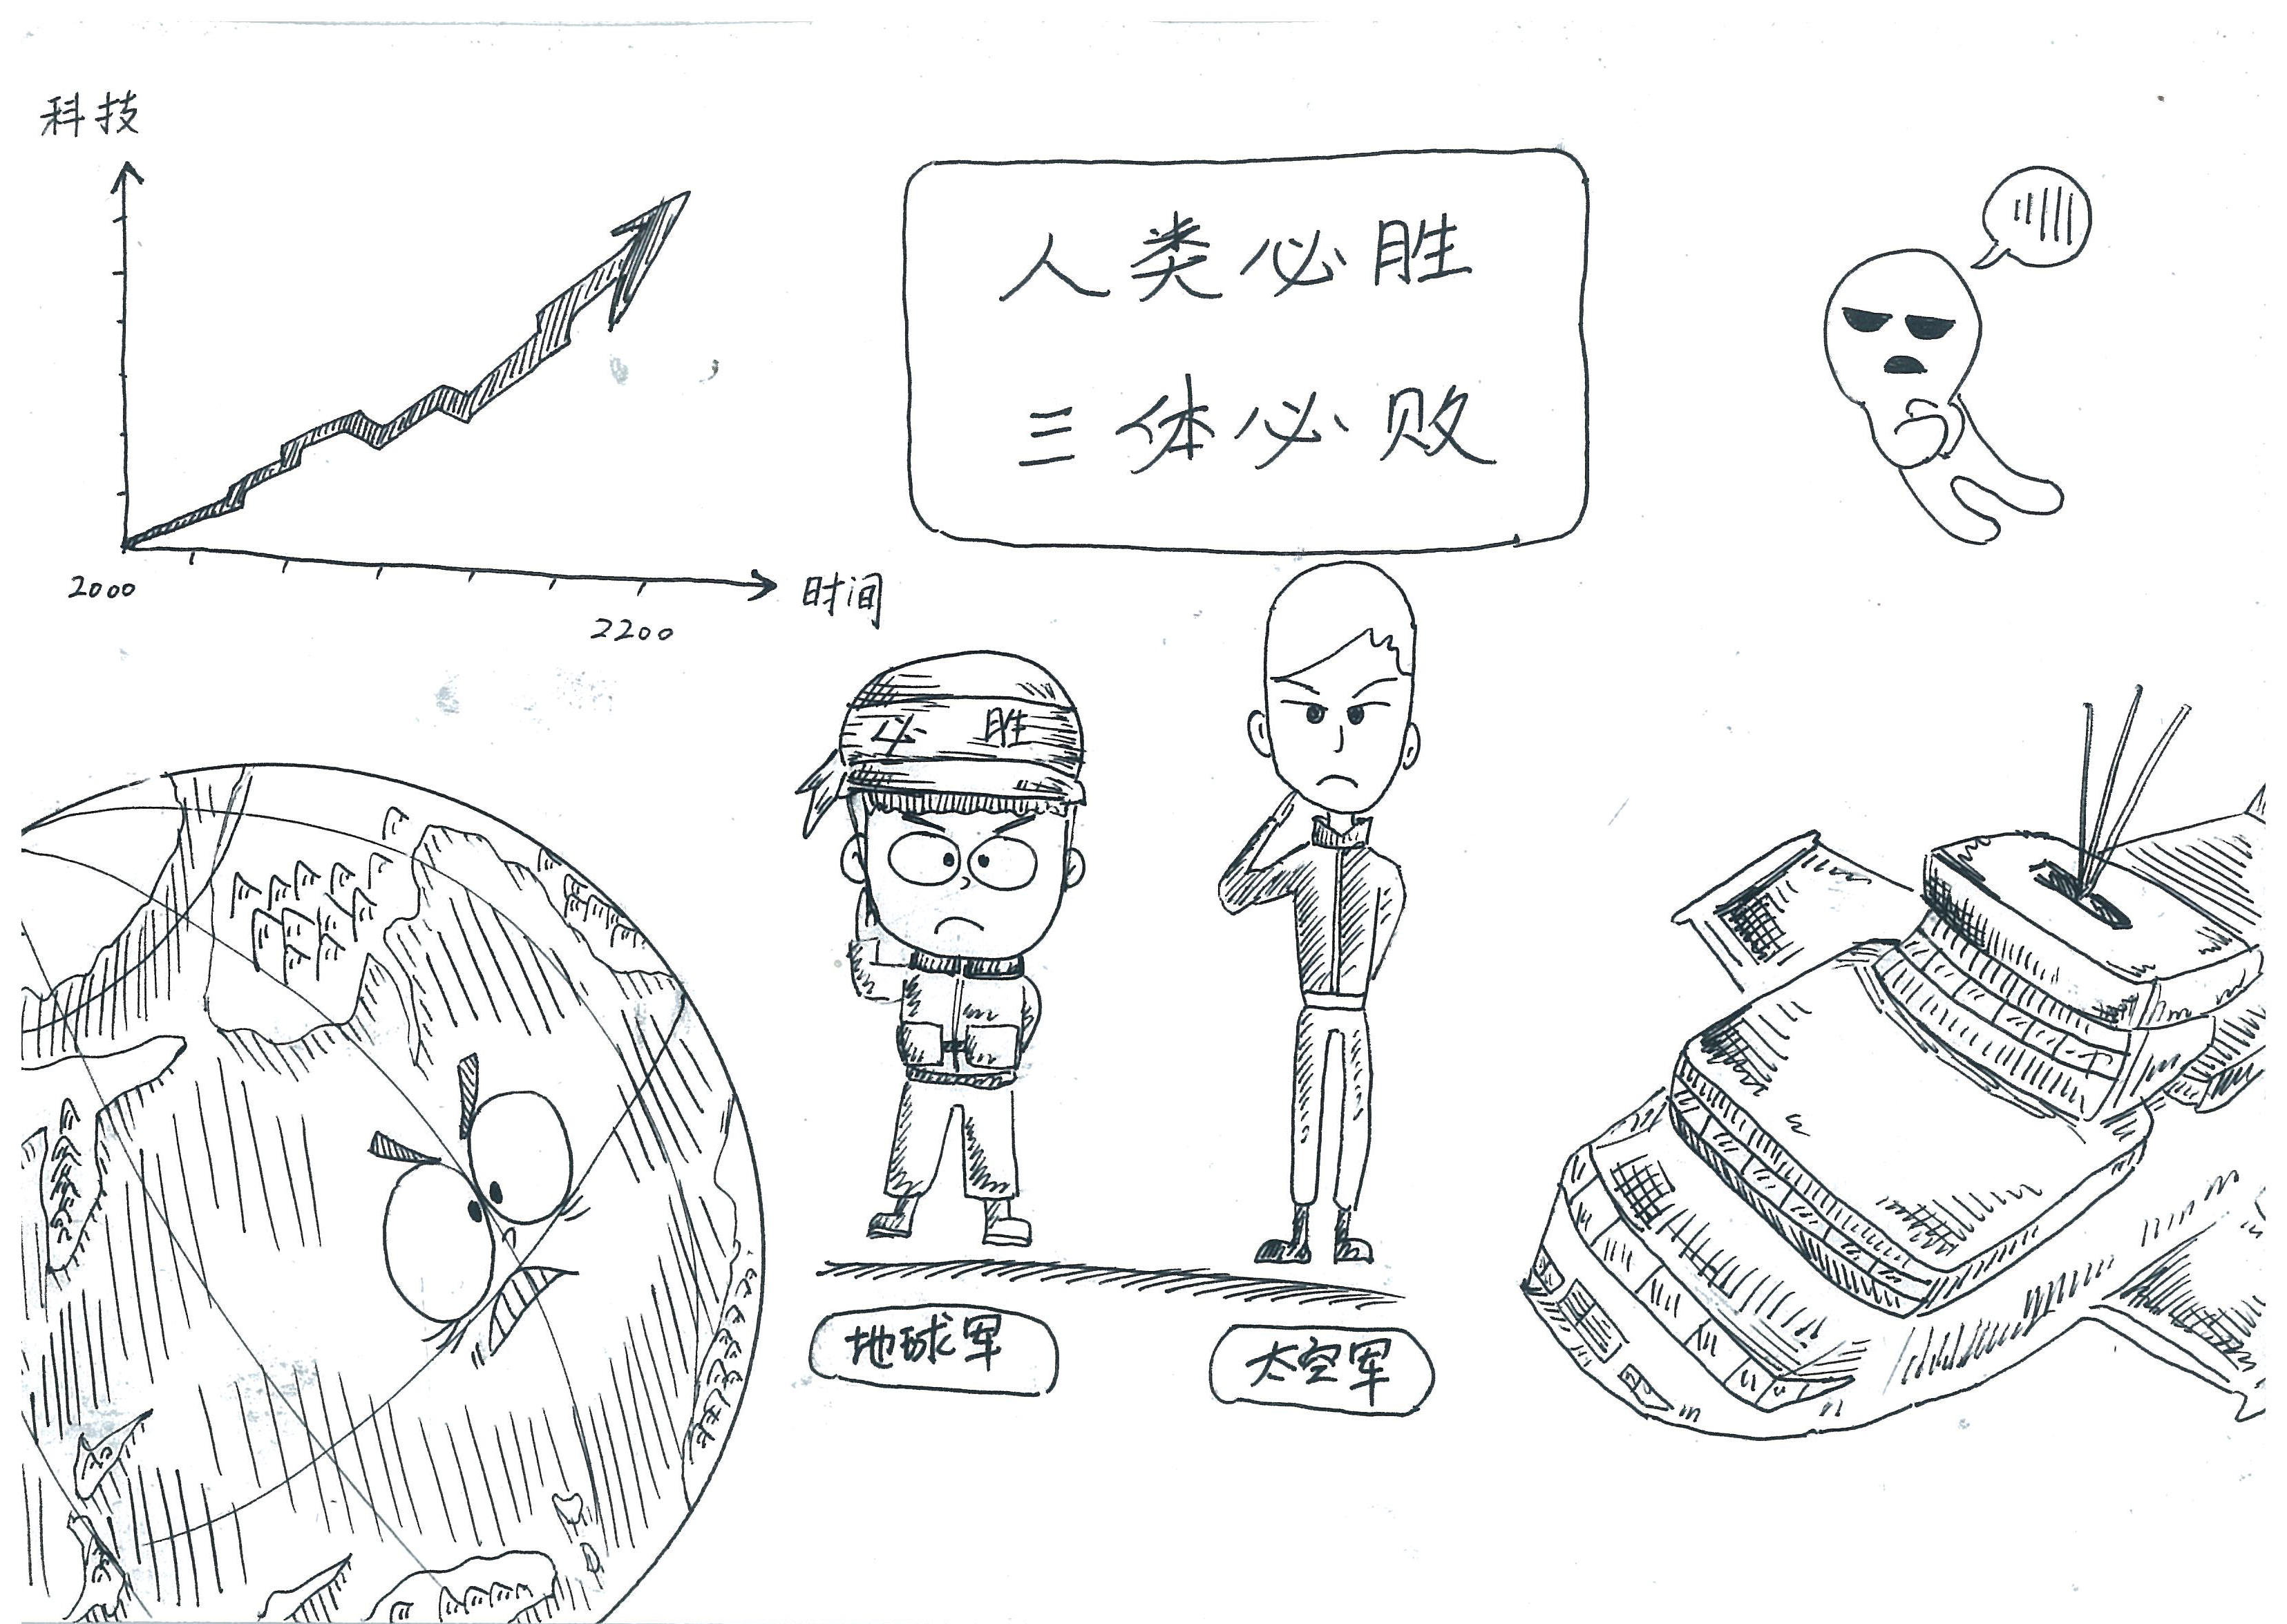 科技
2000
2200
时间
人类必胜
三体必败
必 胜
地球军
太空军